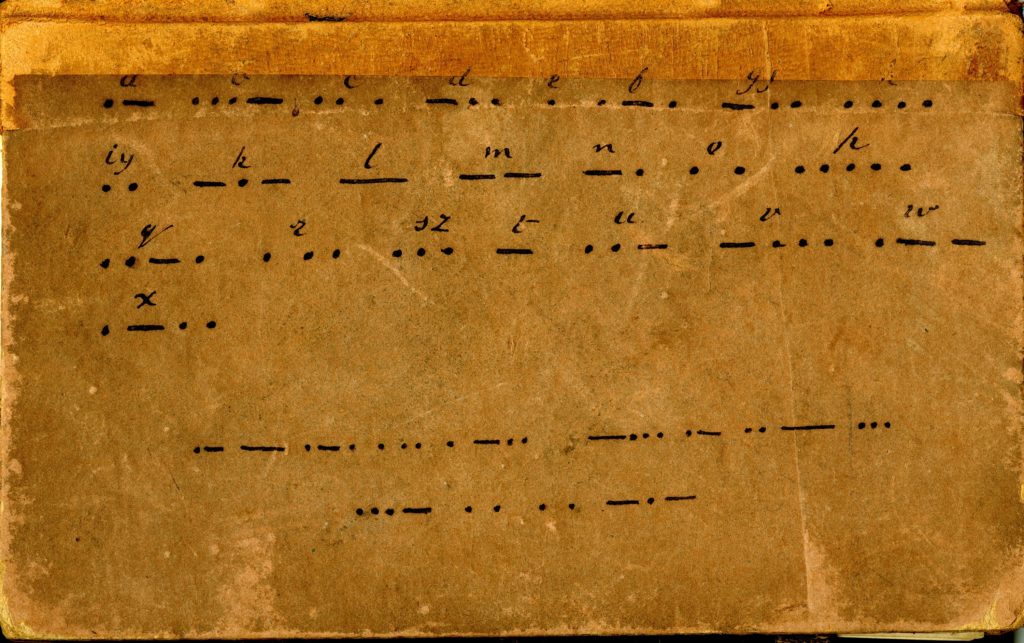 a b c d e f gj h
·– ···– ·· · –·· · ·–· –··· ····
iy k l m n o p
·· –·– — –– –· · · ·····
q r sz t u v w
··–· · ·· ··· – ··– –··· ·––
x
·–··
·– — ·–· · ·· · –·· –··· ·– ·· — ···
···– · · · · –·–